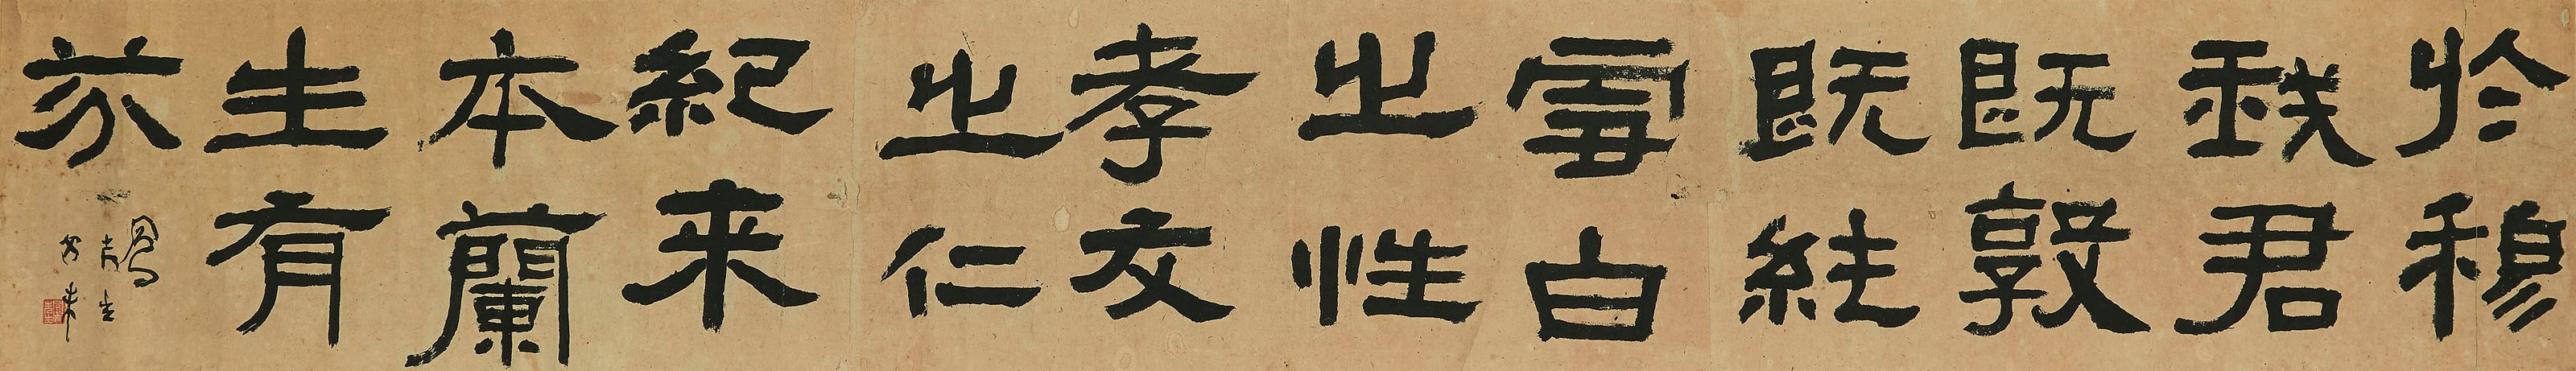 於穆
我君
既敦
既純
雪白
之性
孝友
之仁
紀来
本蘭
生有
芬